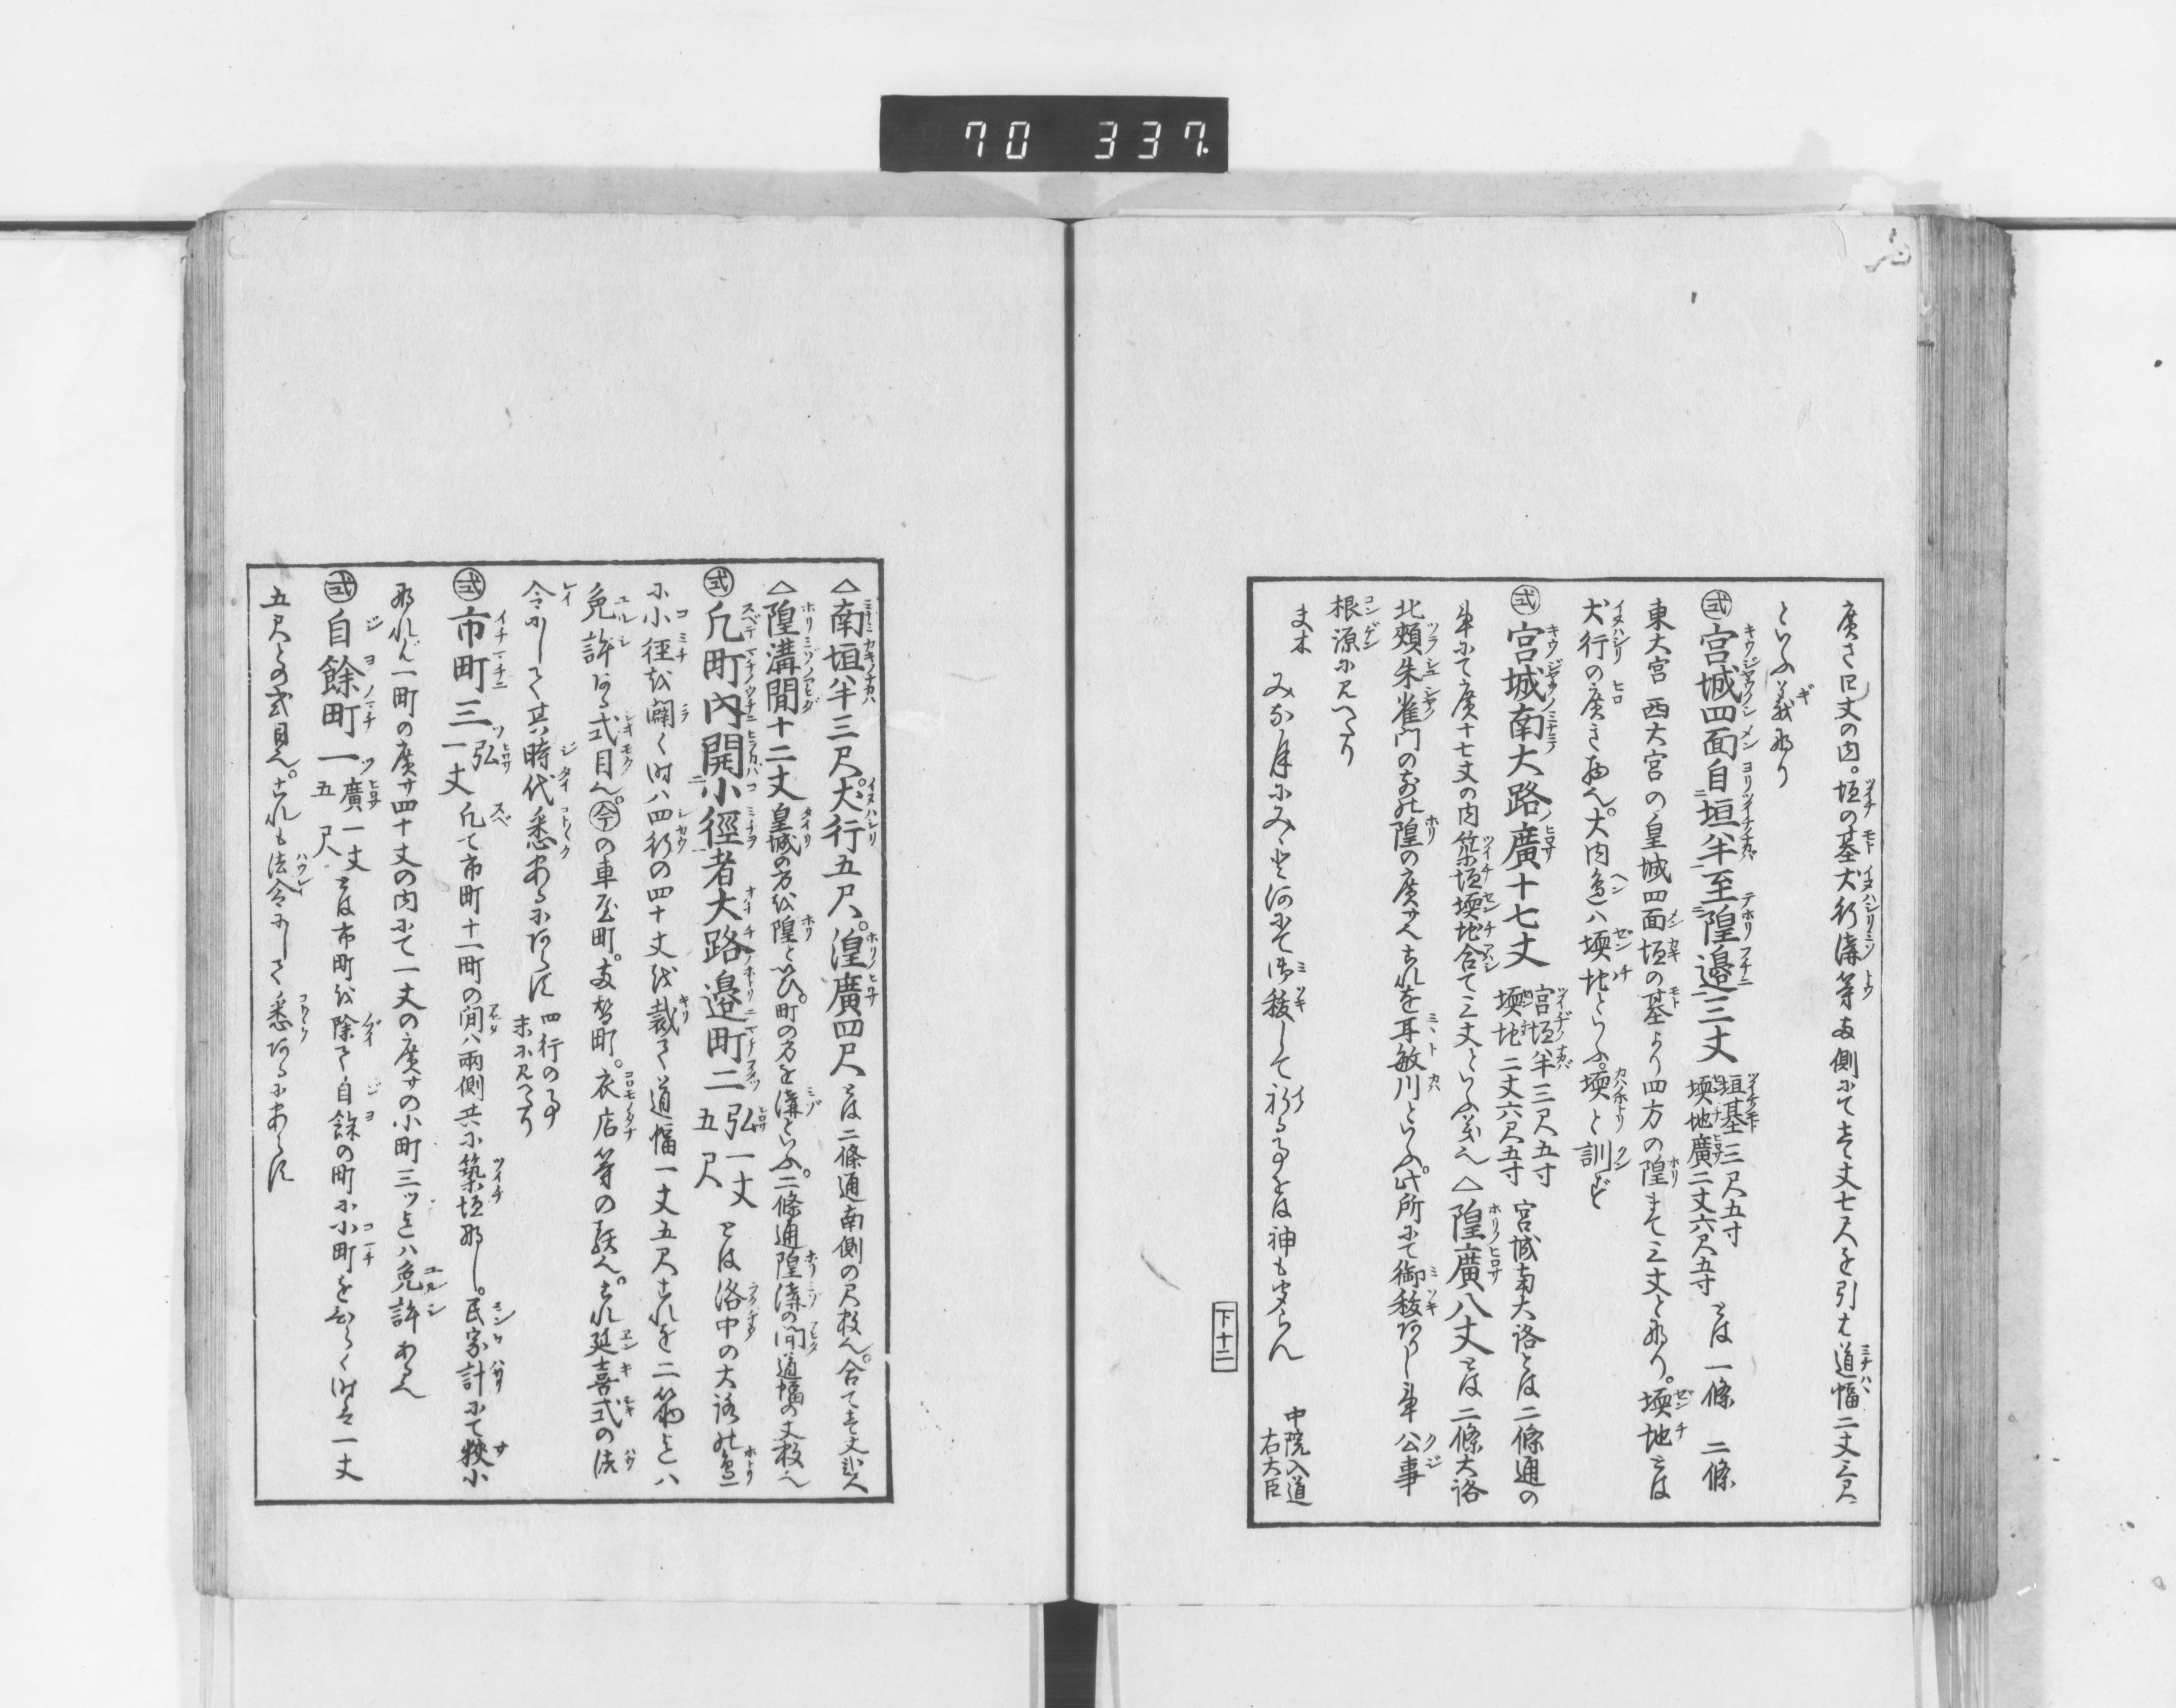 70 337.
廣さ四丈の内。垣の基犬行溝等両側にて壱丈七尺を引は道幅二丈三尺
といふ義なり
式 宮城四面自垣半至隍邉三丈 垣基三尺五寸 壖地廣二丈六尺五寸 とは一條 二條
東大宮 西大宮の皇城四面垣の基より四方の隍まて三丈と形り。壖地とは
犬行の廣き也。大内邉ハ壖地といふ。壖と訓ず
式 宮城南大路廣十七丈 宮垣半三尺五寸 壖地二丈六尺五寸 宮城南大路とは二條通の
事にて廣十七丈の内築垣壖地合て三丈といふ義也△隍廣八丈とは二條大路
北頬朱雀門のお乃隍の廣サ也これを耳敏川といふ。此所にて御秡ありし事公事
根源に見へたり
夫木 みな月にみゝと河にて御秡して祈る事をは神もきくらん 中院入道右大臣
下十二
△南垣半三尺。犬行五尺。湟廣四尺とは二條通南側の尺数也。合て壱丈弐尺
△隍溝間十二丈 皇城の方を隍といひ。町の方を溝といふ。二條通隍溝の間道幅の丈数也
式 凡町内開小徑者大路邉町二 弘一丈五尺 とは洛中の大路の邉
に小徑を闢く時ハ四行の四十丈を裁て道幅一丈五尺これを二筋とハ
免許ある式目也。今の車屋町。両替町。衣店等の類也。これ延喜式の法
令にして其時代悉あるにあらす 四行の事末に見へたり
式 市町三 弘一丈 凡て市町十一町の間ハ兩側共に築垣那し。民家計にて狹小
なれば一町の廣サ四十丈の内にて一丈の廣サの小町三ツとハ免許ある也
式 自餘町一 廣一丈五尺 とは市町を除て自餘の町に小町をひらく時は一丈
五尺との式目也。これも法令にして悉あるにあらす